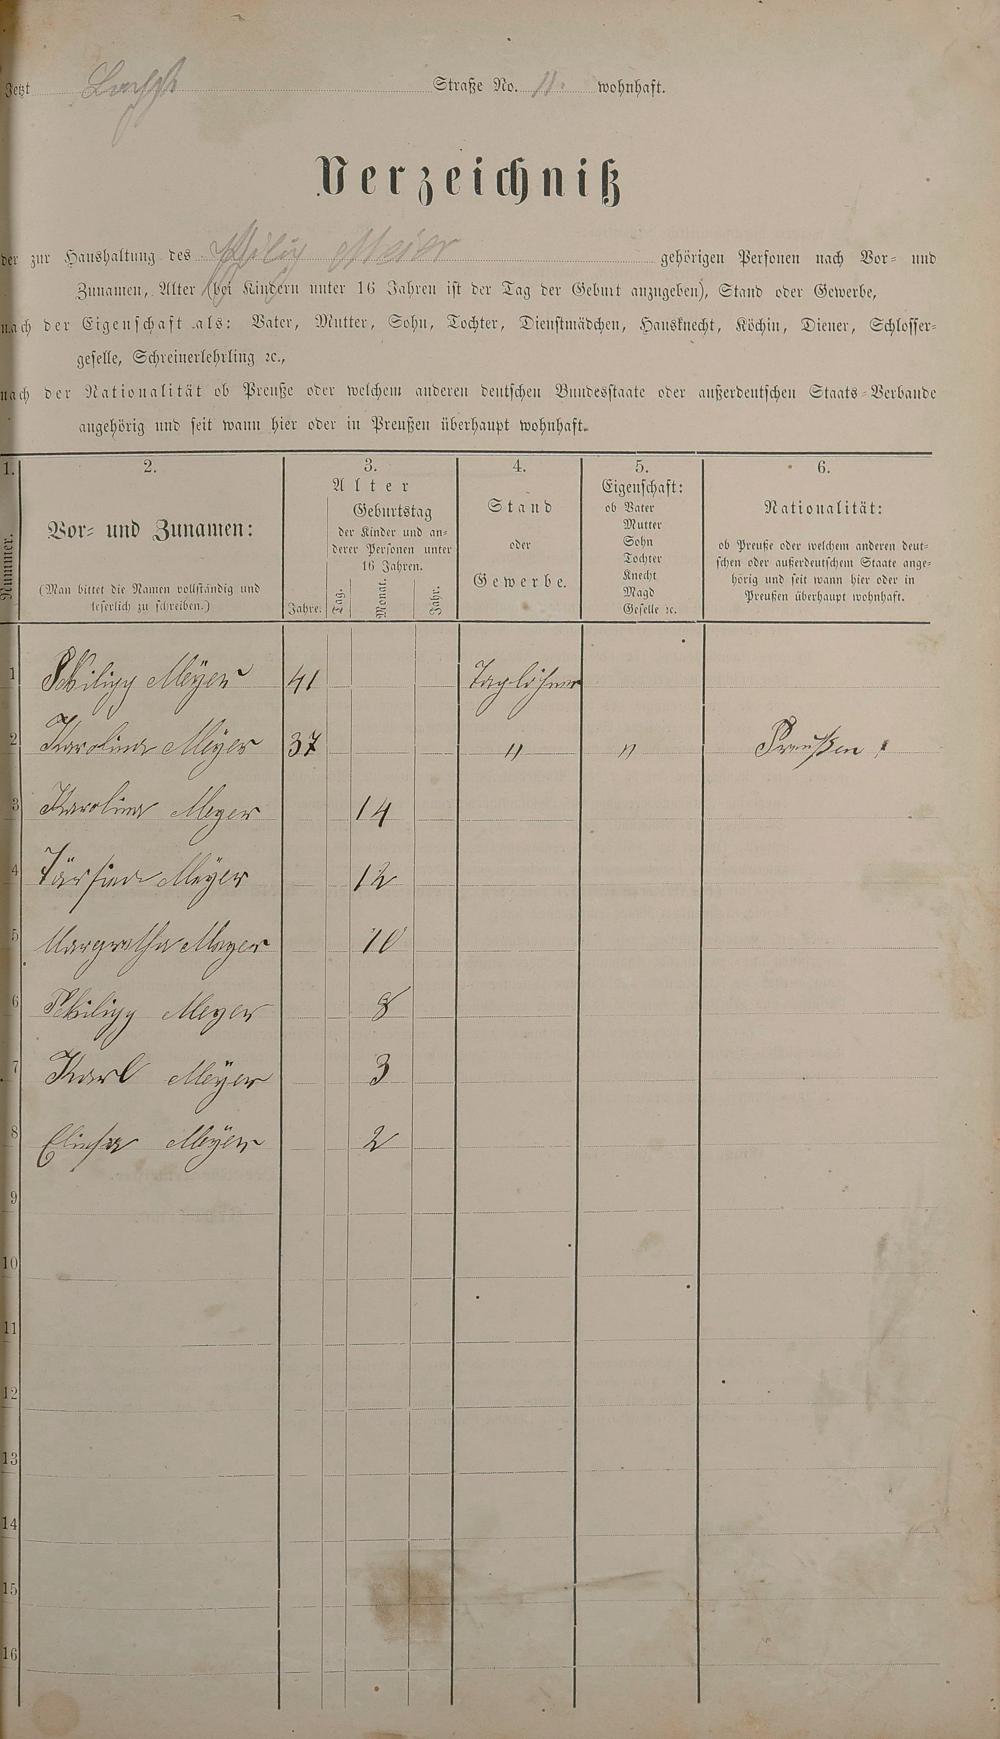 Jetzt Straße No. 11. wohnhaft.
Verzeichniß
der zur Haushaltung des Philip Meier gehörigen Personen nach Vor- und
Zunamen, Alter (bei Kindern unter 16 Jahren ist der Tag der Geburt anzugeben), Stand oder Gewerbe,
nach der Eigenschaft als: Vater, Mutter, Sohn, Tochter, Dienstmädchen, Hausknecht, Köchin, Diener, Schlosser-
geselle, Schreinerlehrling ꝛc.,
nach der Nationalität ob Preuße oder welchem anderen deutschen Bundesstaate oder außerdeutschen Staats-Verbande
angehörig und seit wann hier oder in Preußen überhaupt wohnhaft.
1. 2. 3. 4. 5. 6.
Nummer.
Vor- und Zunamen:
(Man bittet die Namen vollständig und
leserlich zu schreiben.)
Alter
Jahre.
Geburtstag
der Kinder und an-
derer Personen unter
16 Jahren.
Tag. Monat. Jahr.
Stand
oder
Gewerbe.
Eigenschaft:
ob Vater
Mutter
Sohn
Tochter
Knecht
Magd
Geselle ꝛc.
Nationalität:
ob Preuße oder welchem anderen deut-
schen oder außerdeutschem Staate ange-
hörig und seit wann hier oder in
Preußen überhaupt wohnhaft.
1 Philipp Meÿer 41 Taglöhner
2 Karolina Meÿer 37 " " Preußen
3 Karolina Meyer 14
4 Meÿer 12
5 Margretha Meyer 10
6 Philipp Meyer 8
7 Karl Meÿer 3
8 Meÿer 2
9
10
11
12
13
14
15
16